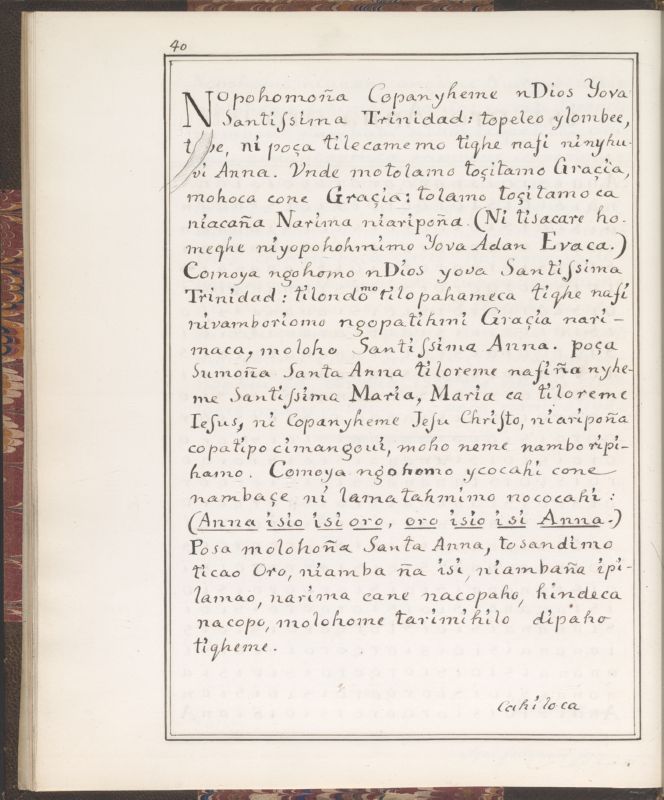 40
Nopohomoña Copanyheme nDios Yova
Santiſsima Trinidad: topeleo ylombee,
be, ni poça tilecamemo tiqhe nafi ninyhu-
vi Anna. Vnde motolamo toçitamo Graçia,
mohoca cone Graçia: tolamo toçitamo ca
niacaña Narima niaripoña. (Ni tisacare ho-
meqhe niyopohohmimo Yova Adan Evaca.)
Comoya ngohomo nDios yova Santiſsima
Trinidad: tilondomo tilopahameca tiqhe nafi
nivamboriomo ngopatihmi Graçia nari-
maca, moloho Santiſsima Anna. poça
sumoña Santa Anna tiloreme nafiña nyhe-
me Santiſsima Maria, Maria ca tiloreme
Ieſus, ni Copanyheme Jeſu Chriſto, niaripoña
copatipo cimangoui, moho neme namboripi-
hamo. Comoya ngohomo ycocahi cone
nambaçe ni lamatahmimo nococahi:
(Anna isio isi oro, oro isio isi Anna.)
Posa molohoña Santa Anna, tosandimo
ticao Oro, niamba ña isi, niambaña ipi-
lamao, narima cane nacopaho, hindeca
nacopo, molohome tarimihilo dipaho
tiqheme.
cahiloca